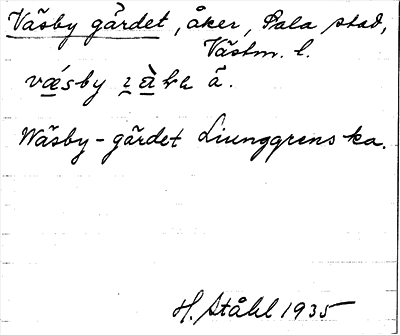 Väsby gärdet, åker, Sala stad,
Västm. l.
vǽsby
å.
Wäsby-gärdet Ljunggrens ka.
H. Ståhl 1935